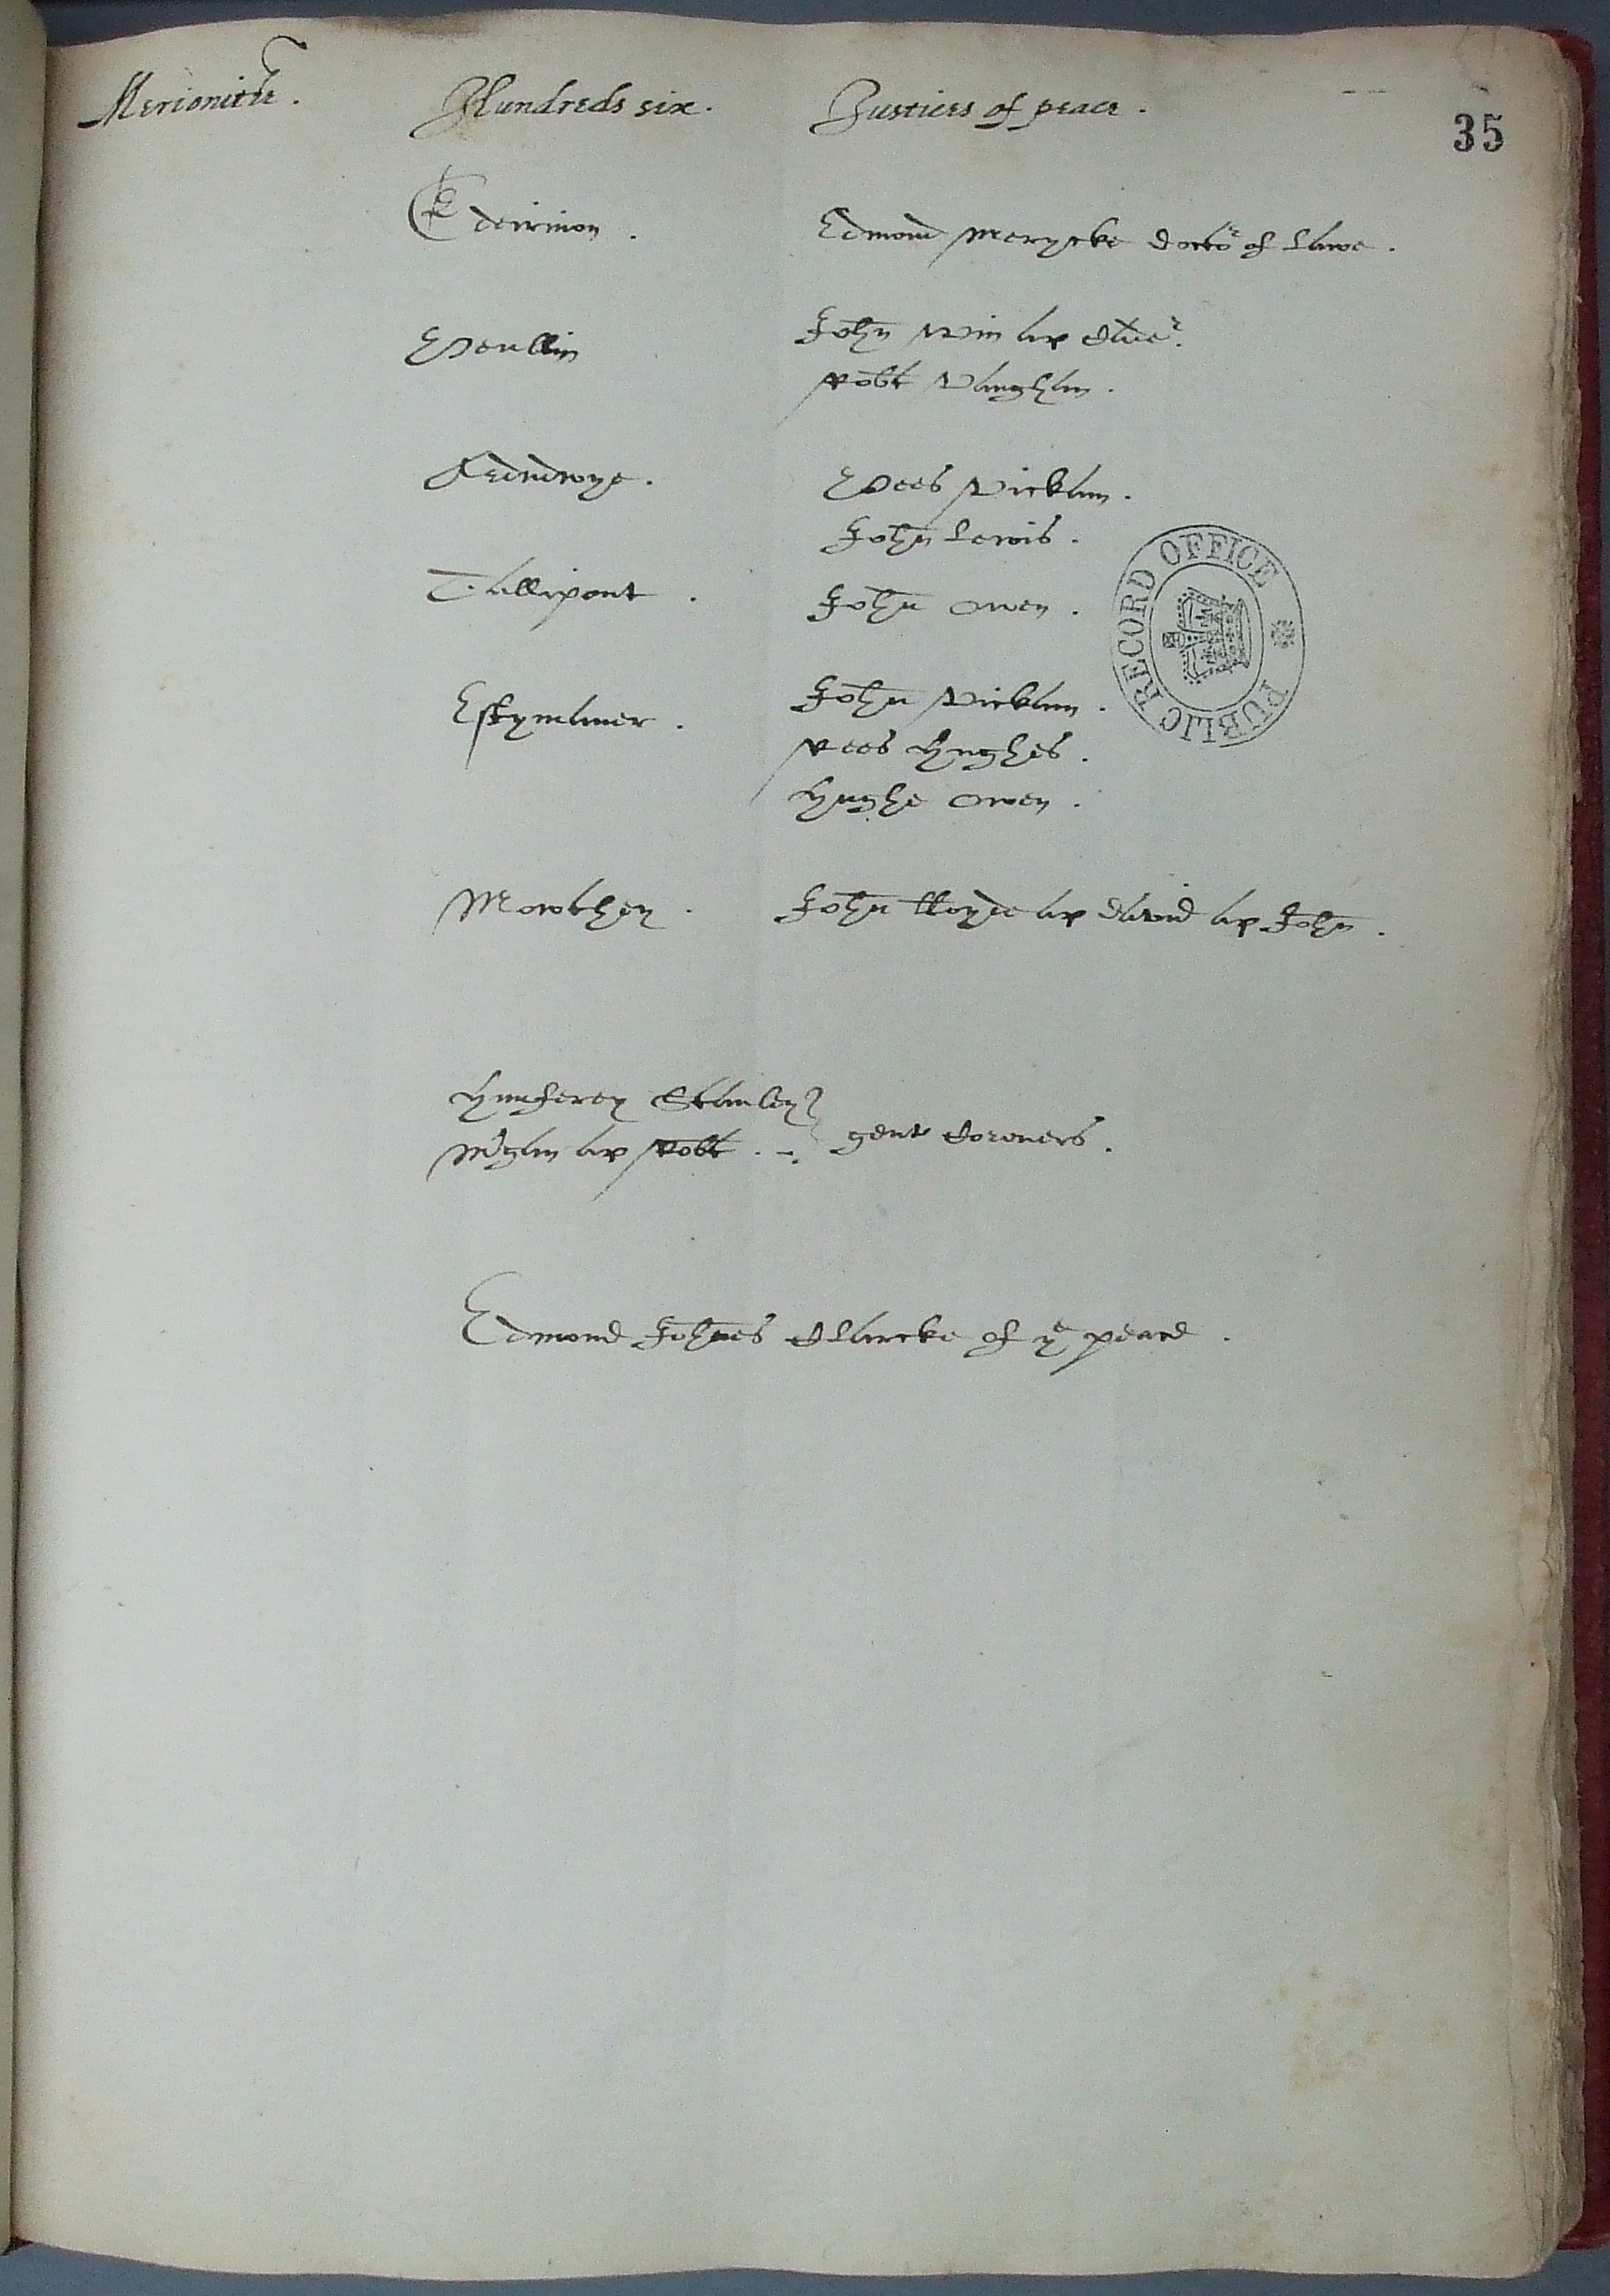 Merionith.
Hundreds six.
Justices of peace.
35
Edeirnion.
Edmond Merycke doctor of lawe.
Penllin
John Win ap Cadwr
Robt Vaughan.
Rees Vichan.
John Lewis.
Tallipont.
John Owen.
Estymaner.
John Vichan.
Rees Hughes.
Hughe Owen.
Mowthey.
John lloyde ap david ap John.
Humferey Stanley
Morgan ap Robt.
gent Coroners.
Edmond Johnes Clarcke of ye peace.
PUBLIC RECORD OFFICE